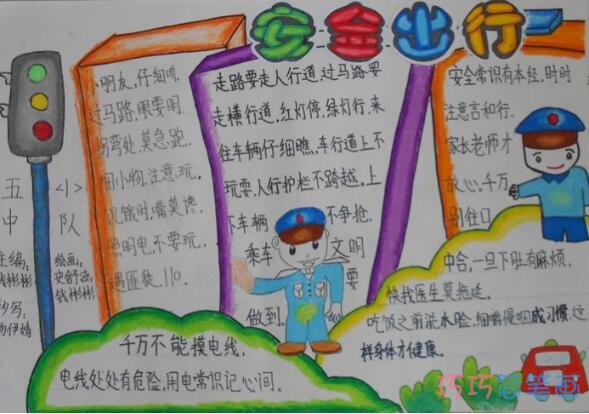 安全出行
五
中
<1>
队
主编:
钱彬彬
绘画:
史舒涵
钱彬彬
抄写:
小朋友,仔细听.
过马路,眼要明.
拐弯处,莫急跑.
细小物,注意玩.
饥饿时,嘴莫馋.
照明电,不要玩.
遇匪徒,110.
走路要走人行道,过马路要
走横行道,红灯停,绿灯行,来
往车辆仔细瞧,车行道上不
玩耍,人行护栏不跨越,上
下车辆 不争抢.
乘车 文明
要
做到.
安全常识有本经,时时
注意言和行.
家长老师才
放心,千万
别往口
中含,一旦下肚有麻烦.
快找医生莫拖延.
吃饭之前洗水脸,细嚼慢咽成习惯,这
样身体才健康.
千万不能摸电线.
电线处处有危险,用电常识记心间.
巧巧简笔画